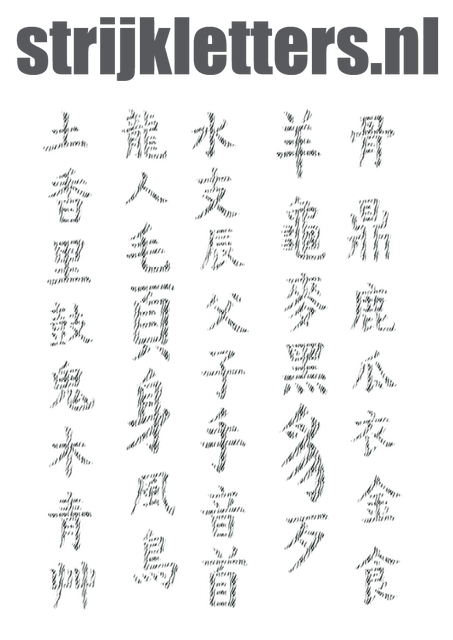 strijkletters.nl
土香里鼓鬼木青艸
龍人毛頁身風鳥
水支辰父子手音首
羊龜麥黑豸歹
骨鼎鹿瓜衣金食